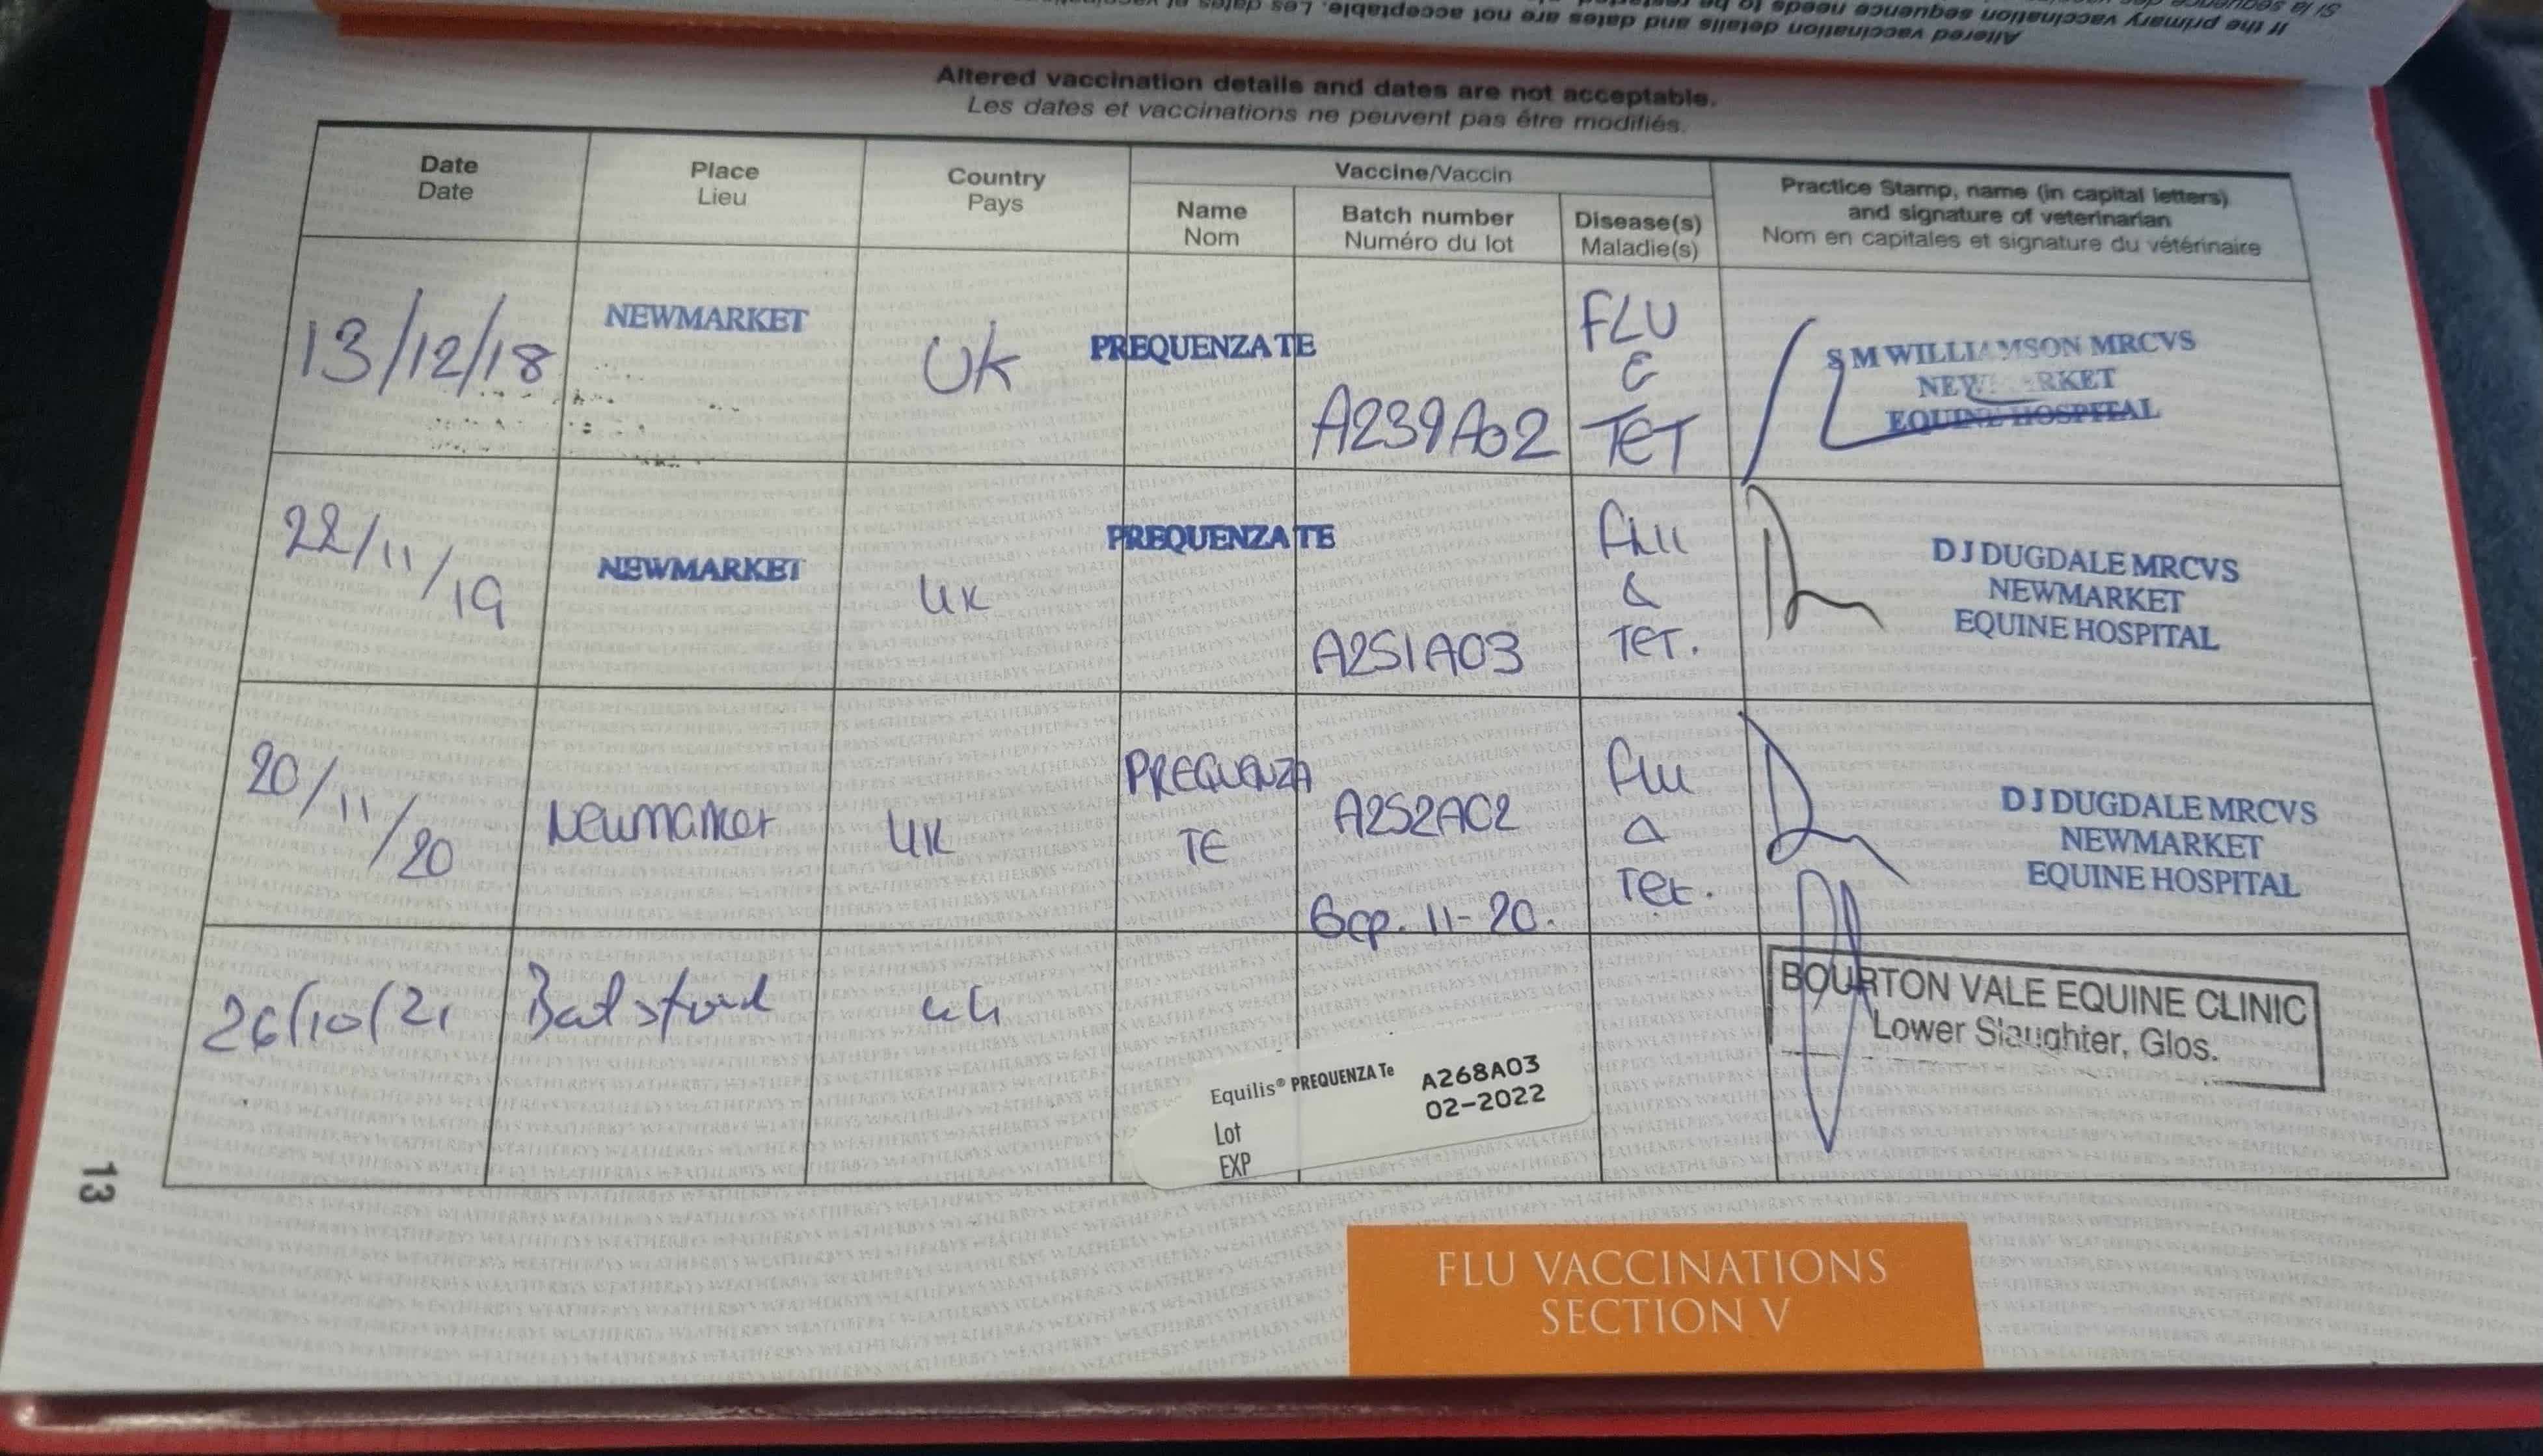 If the primary vaccination sequence needs to be
Altered vaccination details and dates are not acceptable. Les dates
Altered vaccination details and dates are not acceptable.
Les dates et vaccinations ne peuvent pas être modifiés.
Date
Date
Place
Lieu
Country
Pays
Vaccine/Vaccin
Name
Nom
Batch number
Numéro du lot
Disease(s)
Maladie(s)
Practice Stamp, name (in capital letters)
and signature of veterinarian
Nom en capitales et signature du vétérinaire
13/12/18
NEWMARKET
UK
PREQUENZA TE
A239A02
FLU
&
TET
S M WILLIAMSON MRCVS
NEWMARKET
EQUINE HOSPITAL
22/11/19
NEWMARKET
UK
PREQUENZA TE
A251A03
Flu
&
TET.
D J DUGDALE MRCVS
NEWMARKET
EQUINE HOSPITAL
20/11/20
Newmarket
UK
PREQUENZA
TE
A252A02
Exp. 11-20.
Flu
&
Tet.
D J DUGDALE MRCVS
NEWMARKET
EQUINE HOSPITAL
26/10/21
Batsford
UK
Equilis® PREQUENZA Te
Lot A268A03
EXP 02-2022
BOURTON VALE EQUINE CLINIC
Lower Slaughter, Glos.
13
FLU VACCINATIONS
SECTION V